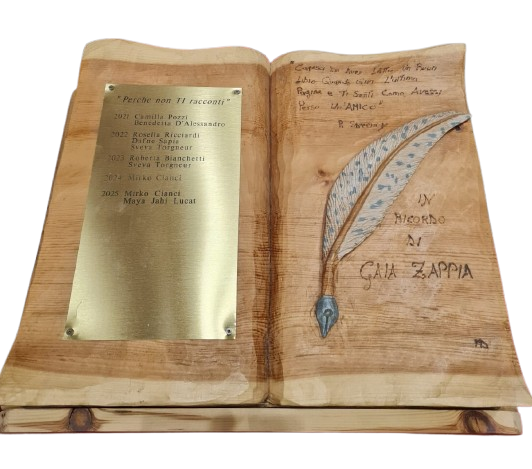 "Perche non TI racconti"
2021 Camilla Pozzi
Benedetta D'Alessandro
2022 Rosella Ricciardi
Dafne Sapia
Sveva Torgneur
2023 Roberta Bianchetti
Sveva Torgneur
2024 Mirko Cianci
2025 Mirko Cianci
Maya Jahi Lucat
"Capisci Di Aver Letto Un Buon
Libro Quando Giri L'ultima
Pagina e Ti Senti Come Avessi
Perso Un AMICO"
P. Sweeney
IN
RICORDO
DI
GAIA ZAPPIA